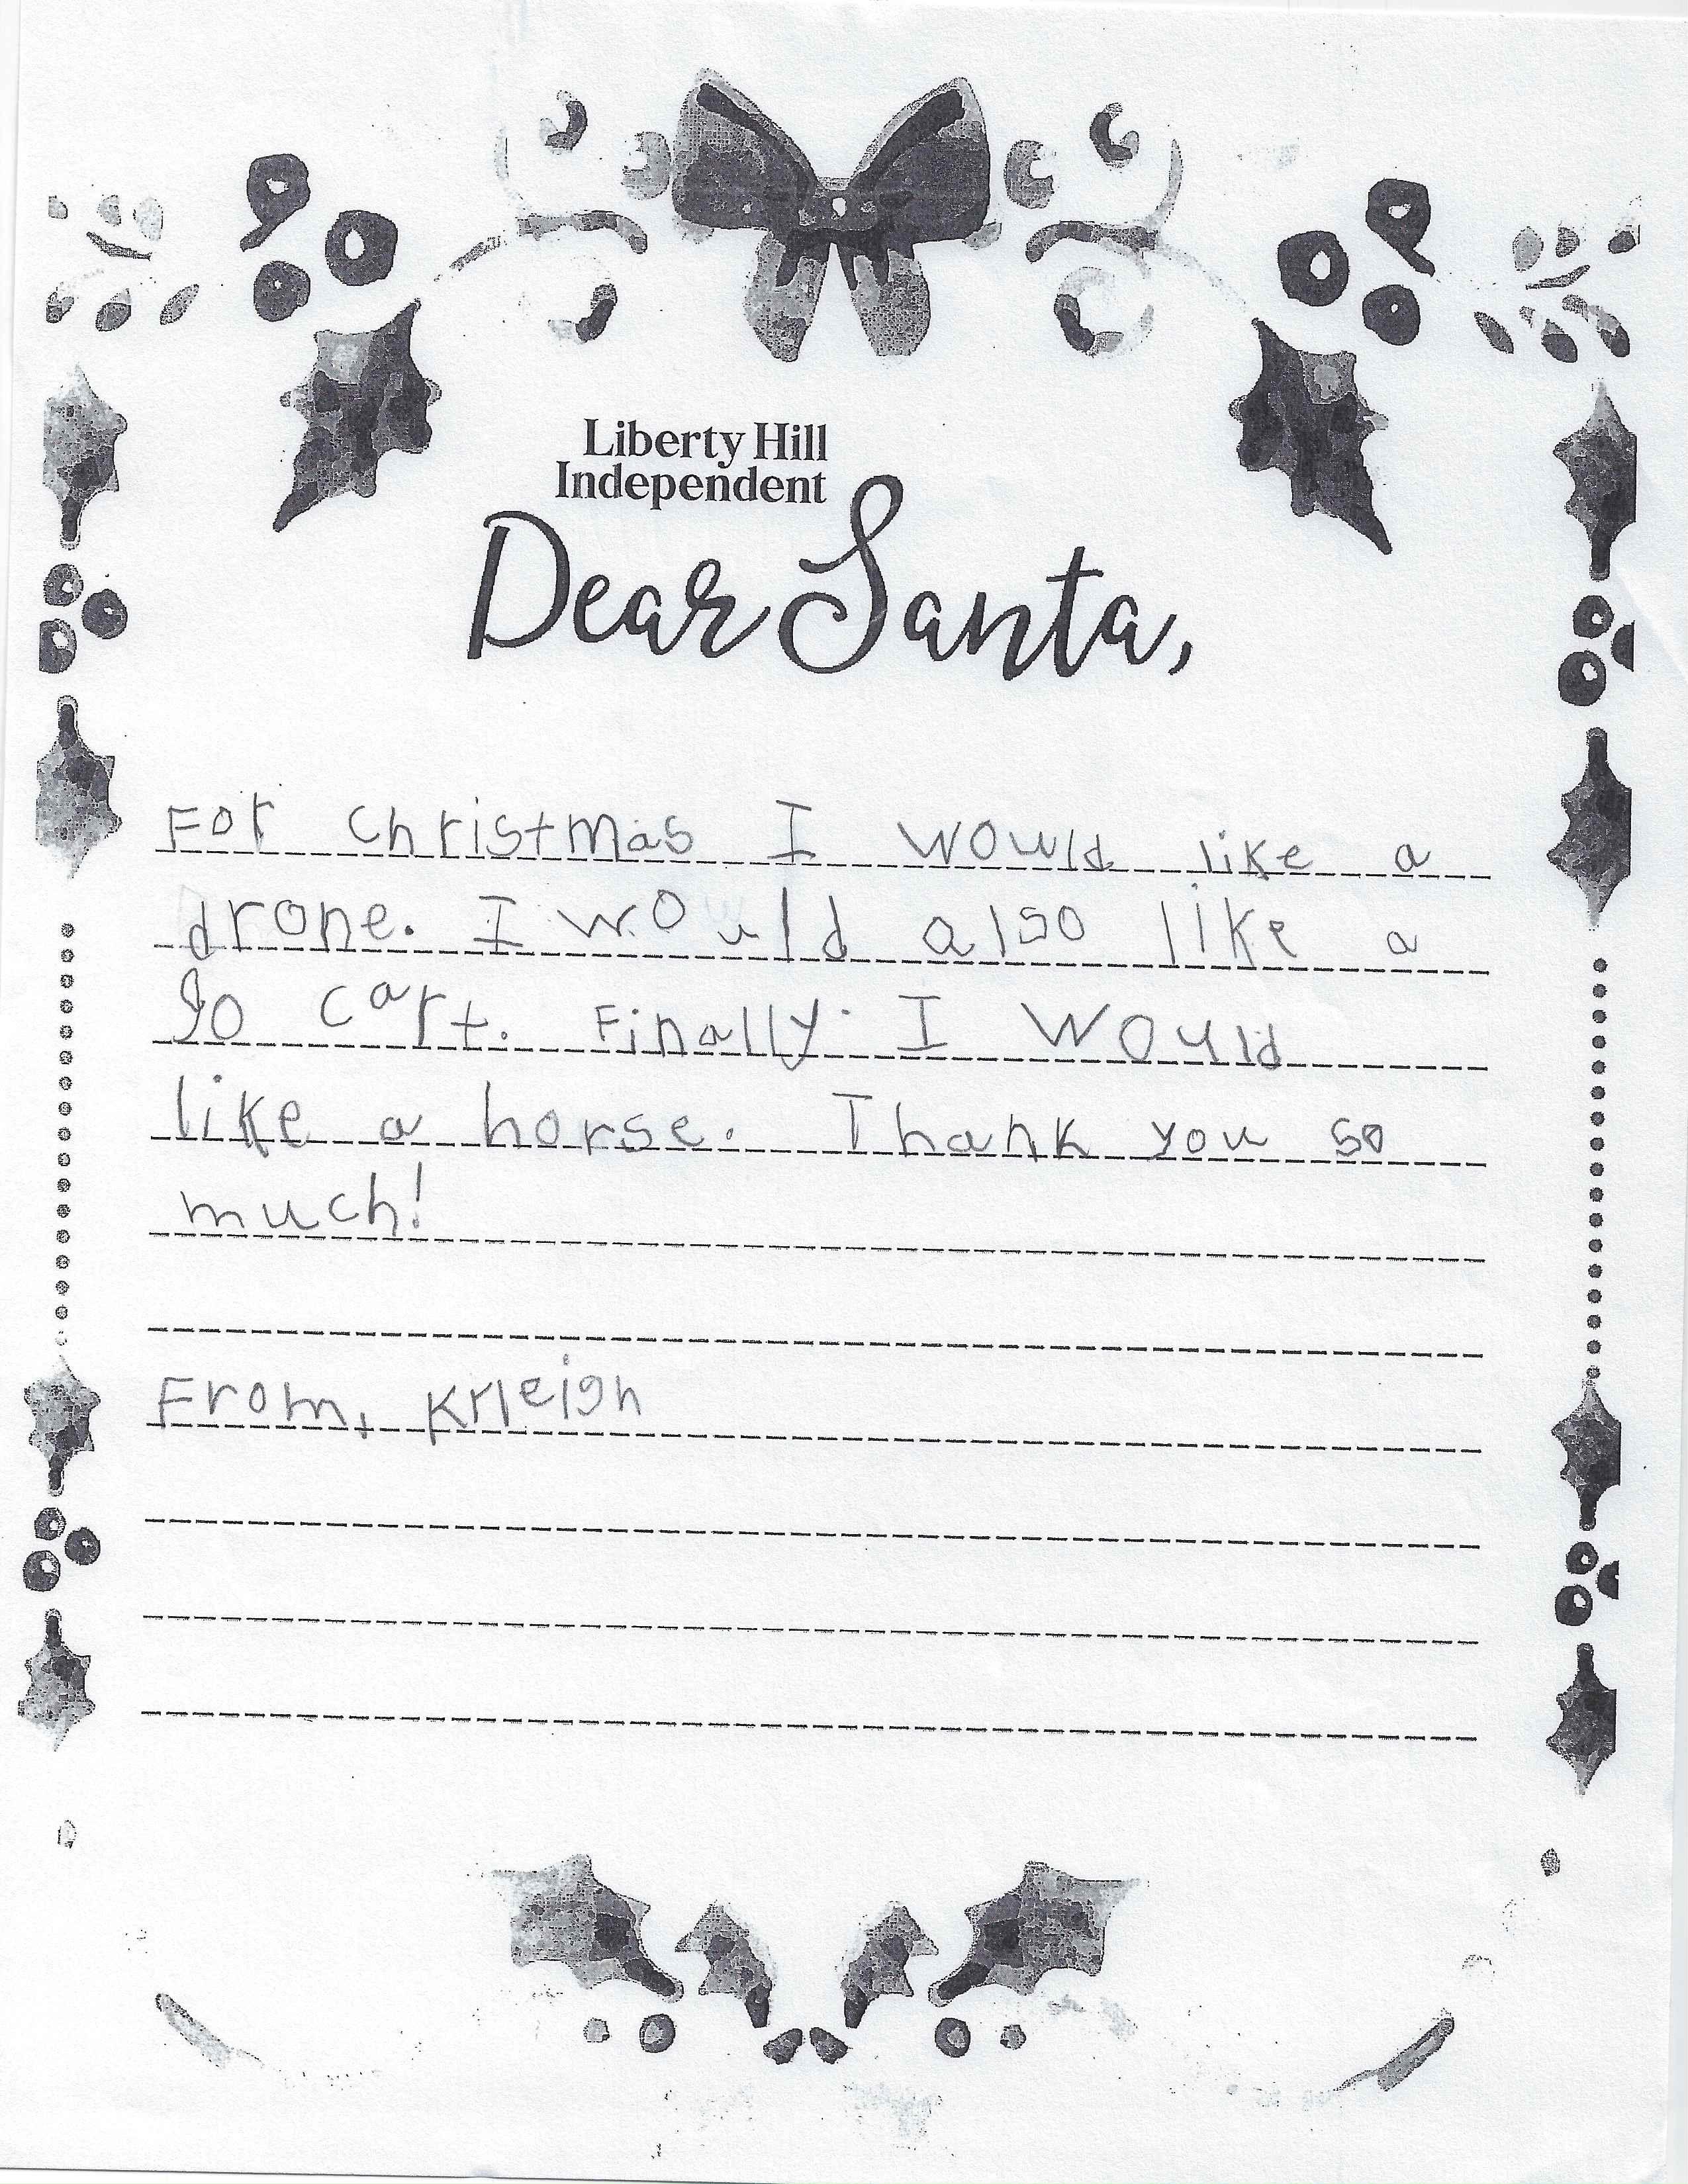 Liberty Hill
Independent
Dear Santa,
For Christmas I would like a
drone. I would also like a
go cart. Finally I would
like a horse. Thank you so
much!
From,